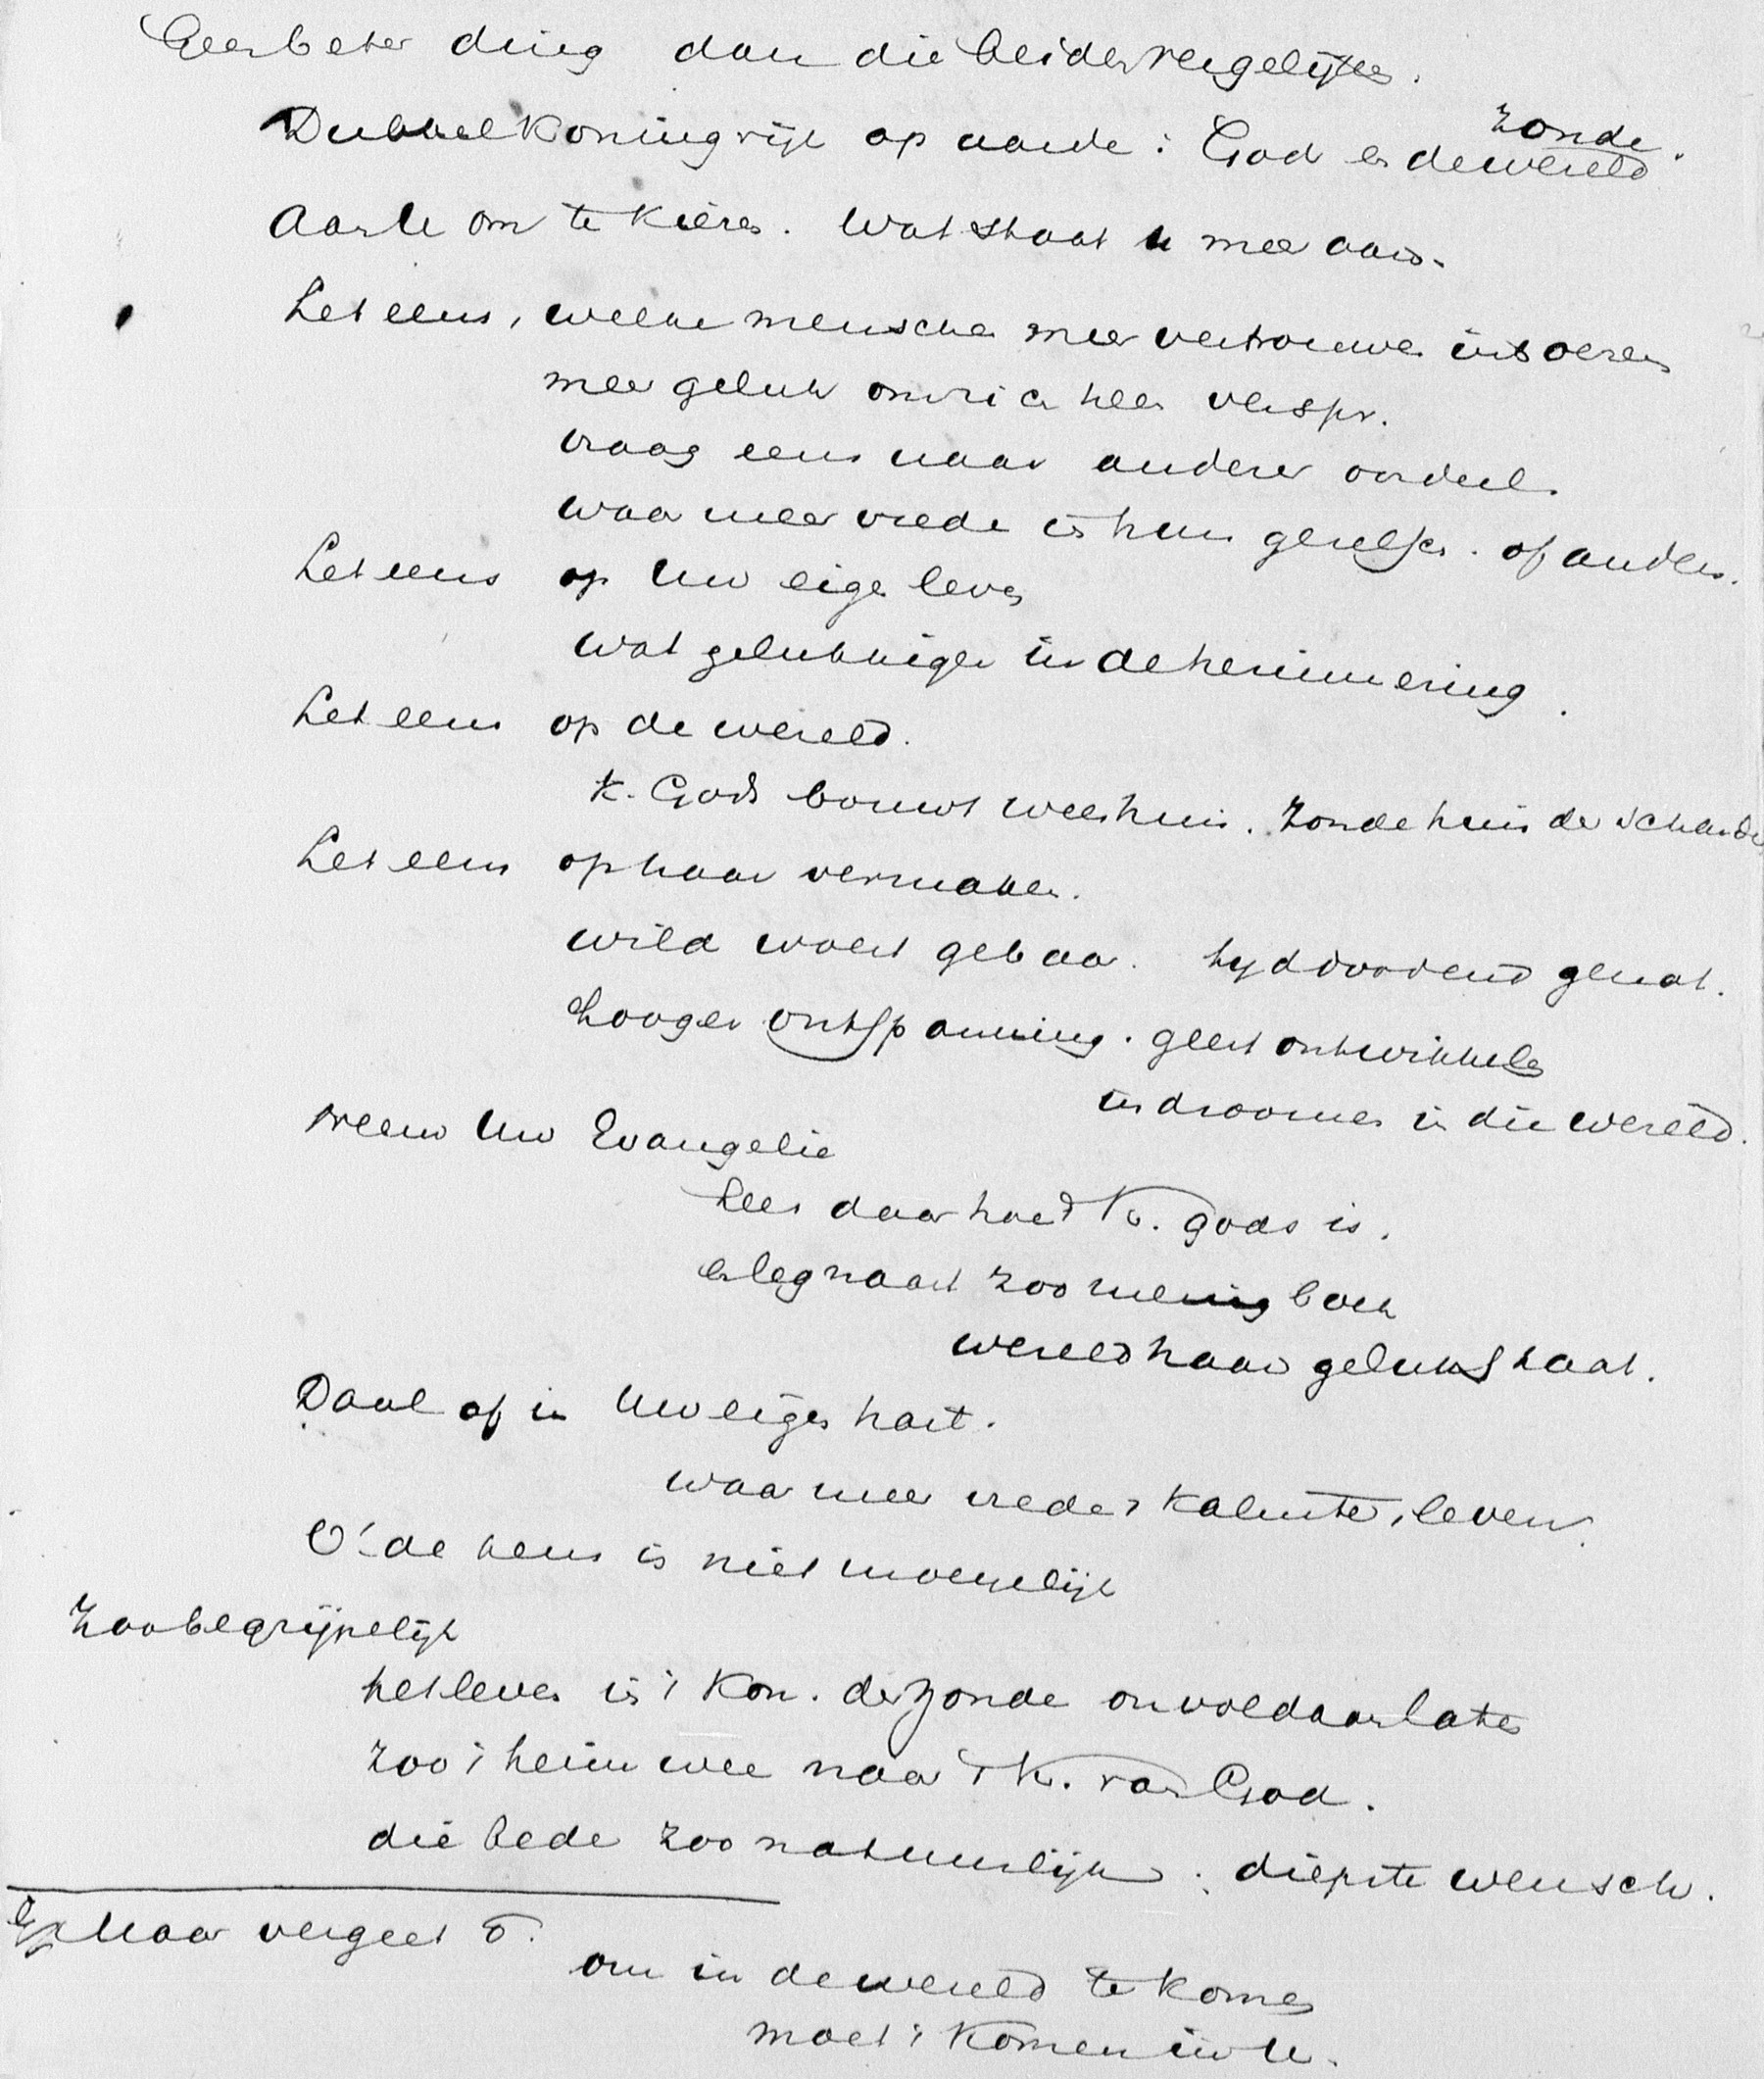 Geen beter ding dan die beiden vergelijken.
Dubbel koningrijk op aarde: God en de wereld zonde.
Aan U om te kiezen. Wat staat u meer aan.
Let eens, welke menschen meer vertrouwen inboezen
meer geluk om zich heen verspr.
vraag eens naar anderer oordeel.
waar meer vrede is hun gezelsch. of anders.
Let eens op Uw eigen leven
wat gelukkiger in de herinnering.
Let eens op de wereld.
K. Gods bouwt weeshuis. Zonde huis der schande
Let eens op haar vermaken.
wild woest gebaar. tijddoodend genot.
hooger ontspanning. geest ontwikkelen
indroomen in die wereld.
Neem Uw Evangelie
Lees daar hoe 't K. Gods is.
en leg naast zoo menig boek
wereld haar geluk staat.
Daal af in Uw eigen hart.
waar meer vrede, kalmte, leven.
O! de keus is niet moeielijk
Zoo begrijpelijk
het leven is i Kon. der zonde onvoldaan laten
zoo i heimwee naar 't K. van God.
die bede zoo natuurlijk: diepste wensch.
Maar vergeet
om in de wereld te komen
moet 't komen in U.